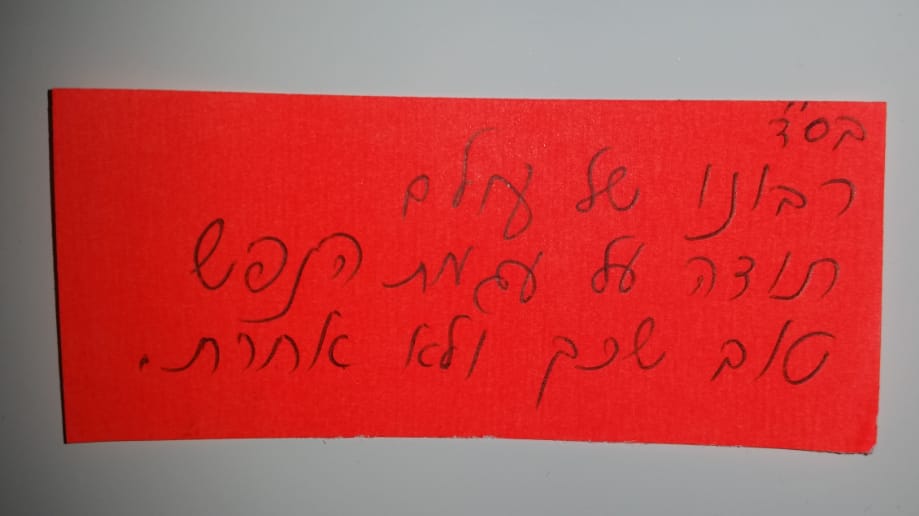 בס"ד
רבונו של עולם
תודה על עגמת הנפש
טוב שכך ולא אחרת.